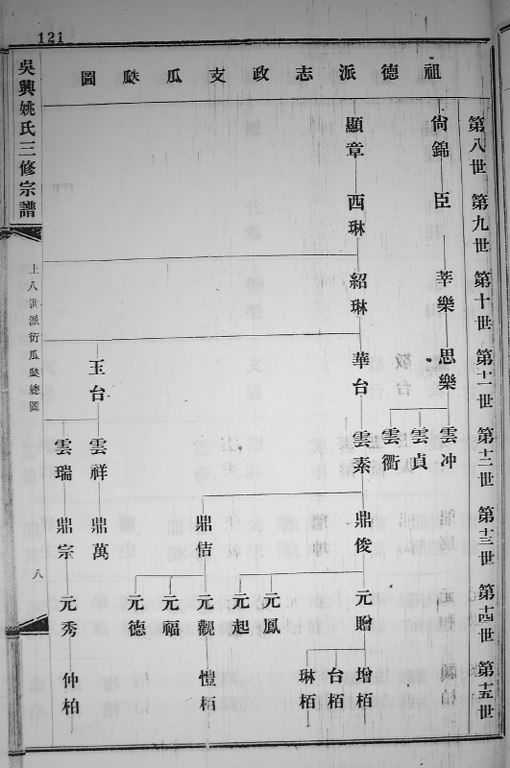 121
祖德派志政支瓜瓞圖
第八世 尙錦 顯章
第九世 臣 西琳
第十世 莘樂 紹琳
第十一世 思樂 華台 玉台
第十二世 雲冲 雲貞 雲衢 雲素 雲祥 雲瑞
第十三世 鼎俊 鼎佶 鼎萬 鼎宗
第十四世 元贈 元鳳 元起 元觀 元福 元德 元秀
第十五世 增栢 台栢 琳栢 愷栢 仲柏
吳興姚氏三修宗譜
上八世派衍瓜瓞總圖
八